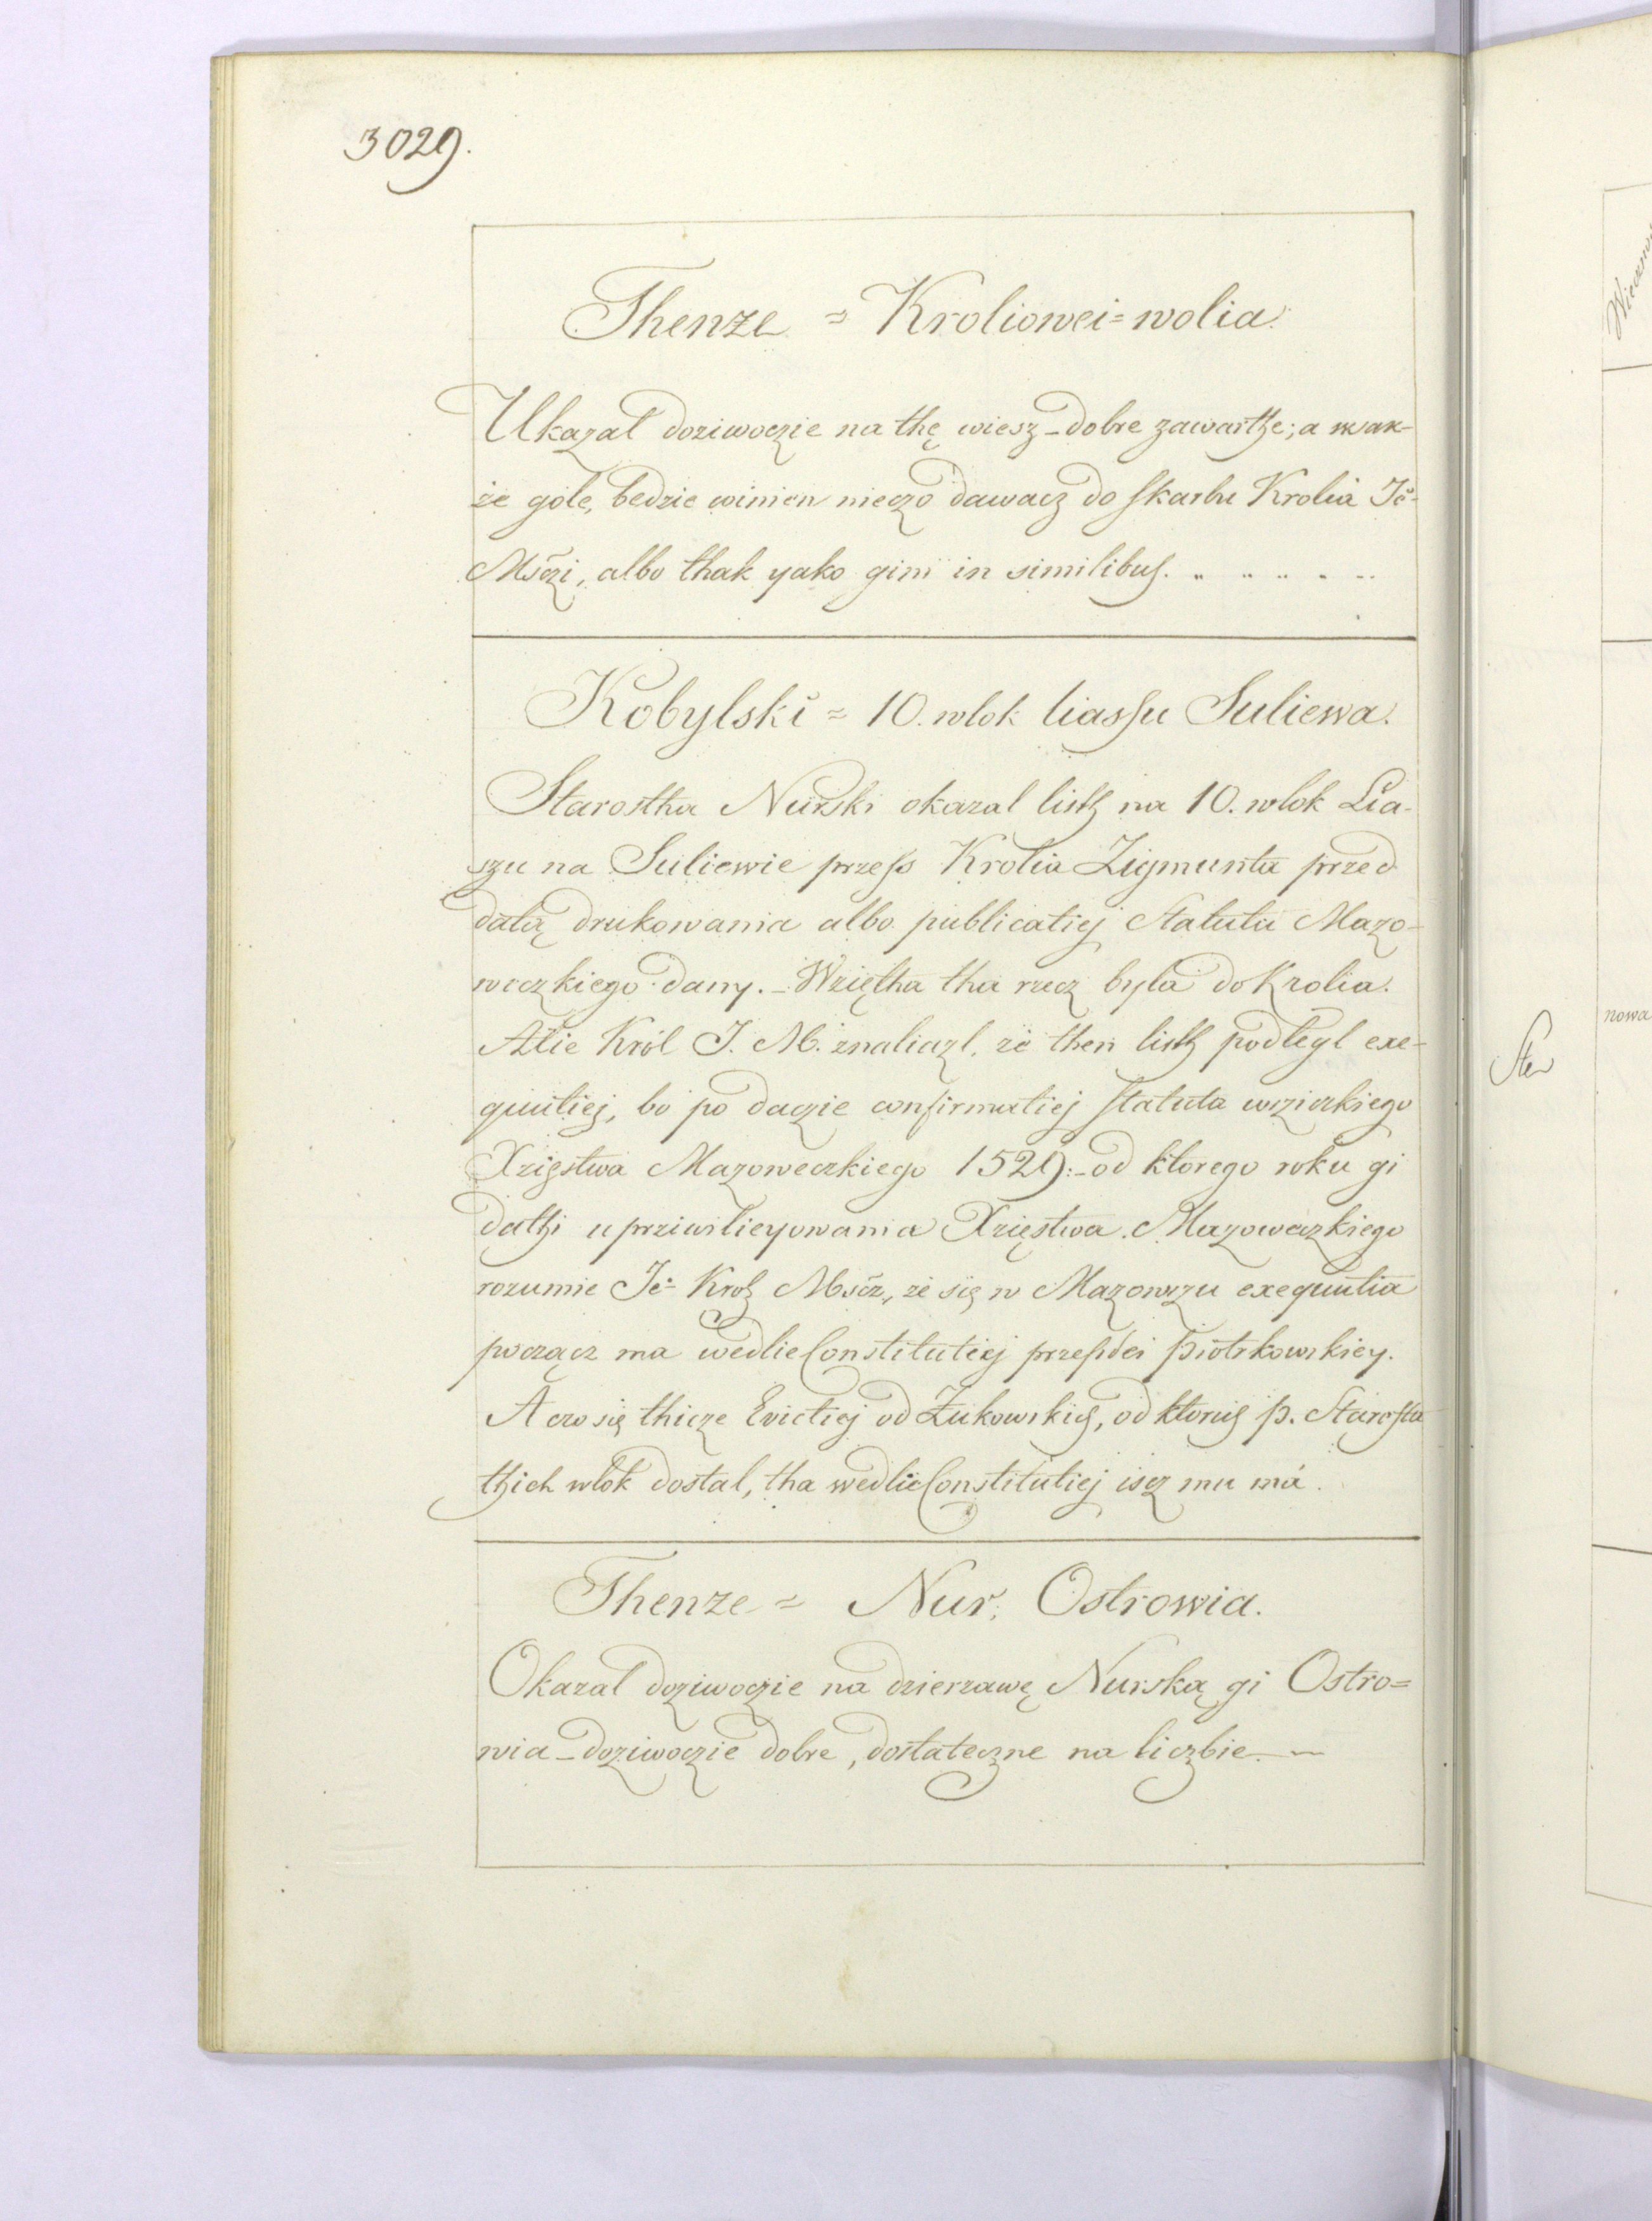 3029.
Thenze = Kroliowei=wolia.
Ukazal doziwoczie na thę wiesz_dobre zawarthe; a wsak-
że gole, bedzie winien nieczo dawacz do skarbu Krolia Je-
Msczi, albo thak yako gini in similibus.
Kobylski = 10. wlok liassu Suliewa.
Starostha Nurski okazal listh na 10. wlok Lia-
szu na Suliewie przess Krolia Zigmunta przed
datą drukowania albo publicatiej Statutu Mazo-
weczkiego dany._Wziętha tha rzecz byla do Krolia.
Alie Król J. M. znaliazl, że then listh podlegl exe-
quutiej, bo po daczie confirmatiej statuta wziczkiego
Xzięstwa Mazoweczkiego 1529:_od ktorego roku gi
dathi uprziwilieyowania Xzięstwa Mazoweczkiego
rozumie Je° Krol Mscz, ze się w Mazowszu exequutia
począcz ma wedlie Constitutiej przeszlei Piotrkowskiey.
A czo się thicze Evictiej od Żukowskich, od ktorich p. Starosta
thich wlok dostal, tha wedlie Constitutiej iscz mu má.
Thenze = Nur, Ostrowia.
Okazal doziwoczie na dzierzawę Nurską gi Ostro=
wia_doziwoczie dobre, dostateczne na liczbie._
nowa